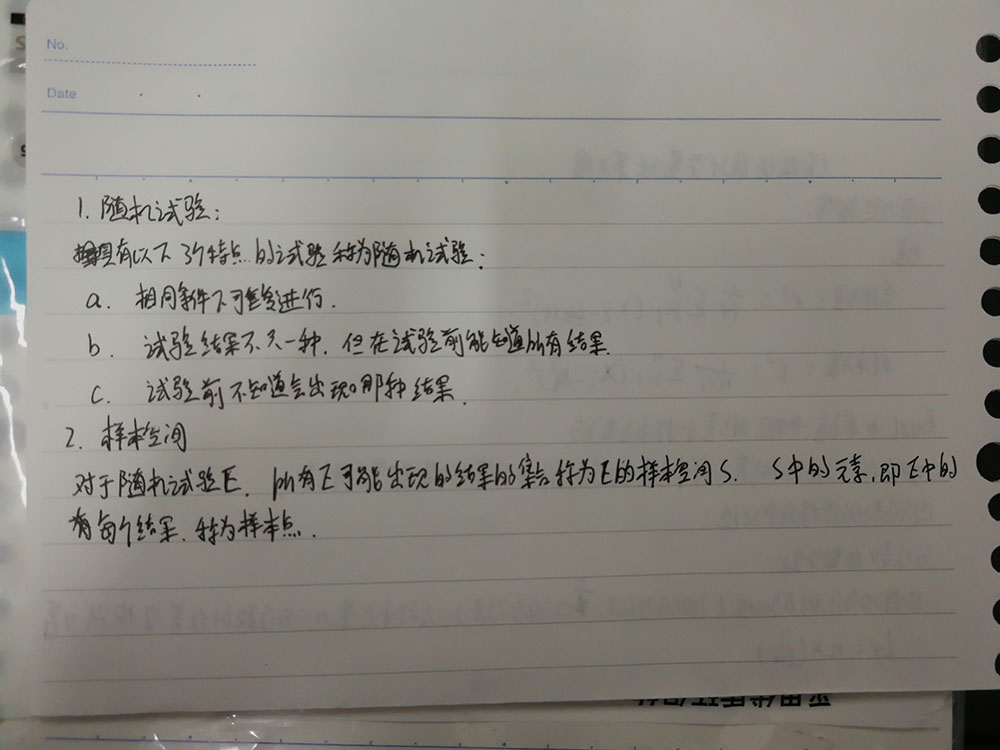 No.
Date
1. 随机试验:
具有以下3个特点的试验称为随机试验:
a. 相同条件下可重复进行.
b. 试验结果不只一种, 但在试验前能知道所有结果.
c. 试验前不知道会出现哪种结果.
2. 样本空间
对于随机试验E, 所有E可能出现的结果的集合称为E的样本空间S. S中的元素,即E中的
每个结果, 称为样本点.